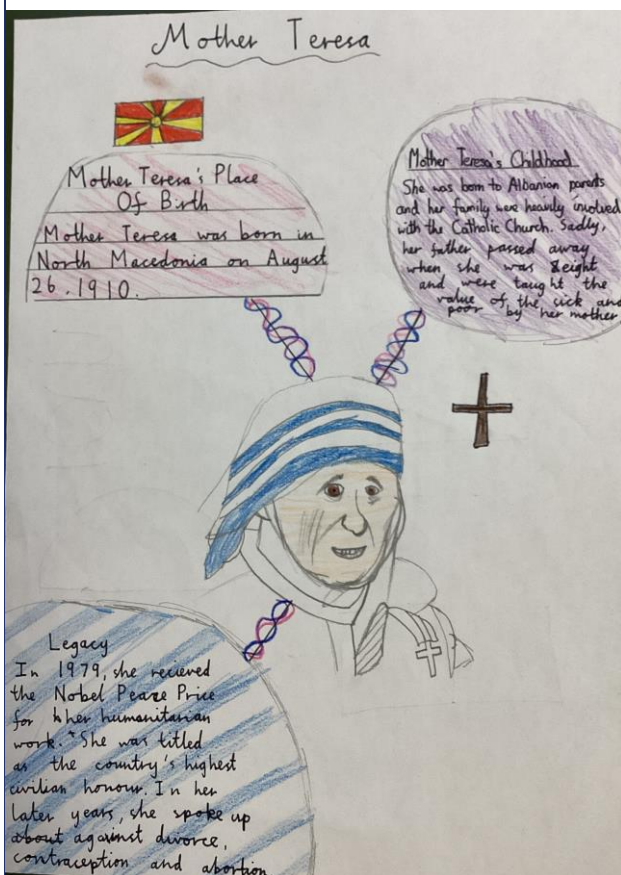 Mother Teresa
Mother Teresa's Place
Of Birth
Mother Teresa was born in
North Macedonia on August
26.1910.
Mother Teresa's Childhood
She was born to Albanian parents
and her family were heavily involved
with the Catholic Church. Sadly,
her father passed away
when she was eight
and were taught the
value of the sick and
poor by her mother
Legacy
In 1979, she recieved
the Nobel Peaze Price
for her humanitarian
work. She was titled
as the country's highest
civilian honour. In her
later years, she spoke up
about against divorce,
contraception and abortion